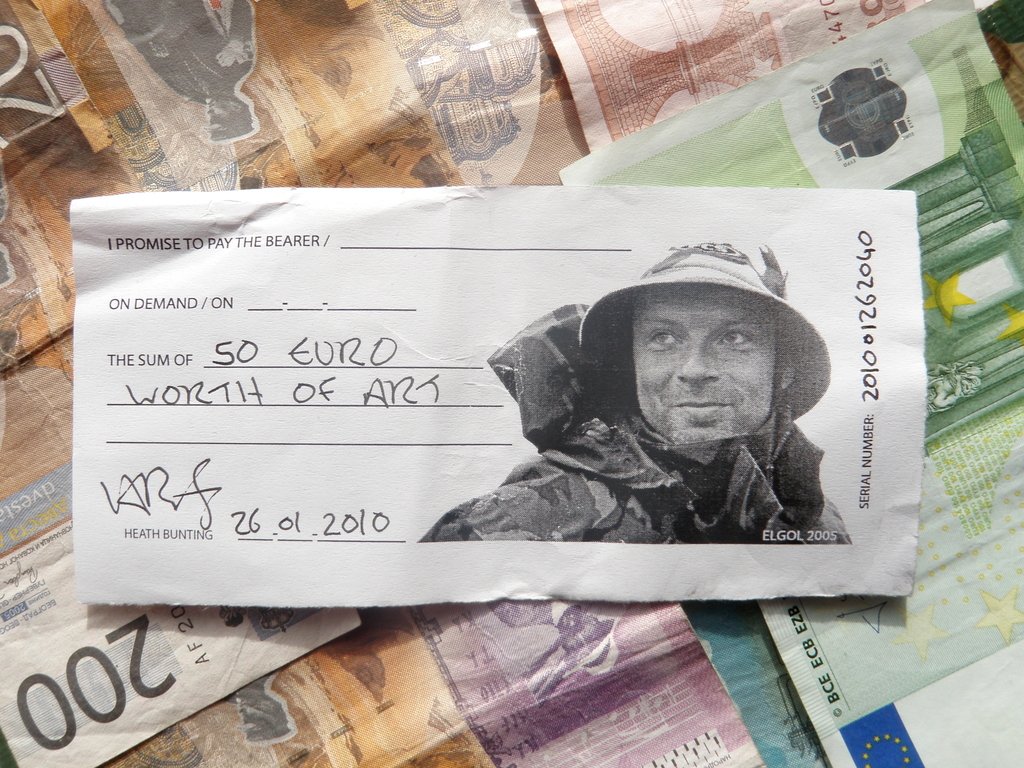 I PROMISE TO PAY THE BEARER /
ON DEMAND / ON _ - _ - _
THE SUM OF 50 EURO
WORTH OF ART
HEATH BUNTING 26.01.2010
ELGOL 2005
SERIAL NUMBER: 201001262040
200
AF 20
© BCE ECB EZB